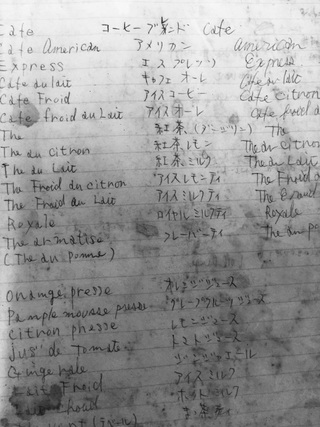 Cafe コーヒーブレンド Cafe
Cafe American アメリカン American
Express エスプレッソ Express
Cafe au lait キャフェ オーレ Cafe au lait
Cafe Froid アイスコーヒー Cafe Citron
Cafe froid au Lait アイス オーレ Cafe froid a
The 紅茶 The
The au Citron 紅茶 レモン The au Citron
The au Lait 紅茶 ミルク The au Lait
The Froid au citron アイスレモンティ The Froid
The Froid au Lait アイスミルクティ The
Royale ロイヤル ミルクティ Royale
The aromatise フレーバーティ The
(The au Pomme)
Orange presse オレンジジュース
Pample mousse presse グレープフルーツジュース
Citron presse レモンジュース
Jus de Tomate トマトジュース
Ginger ale ジンジャエール
Lait Froid アイス ミルク
Lait houd ホット ミルク